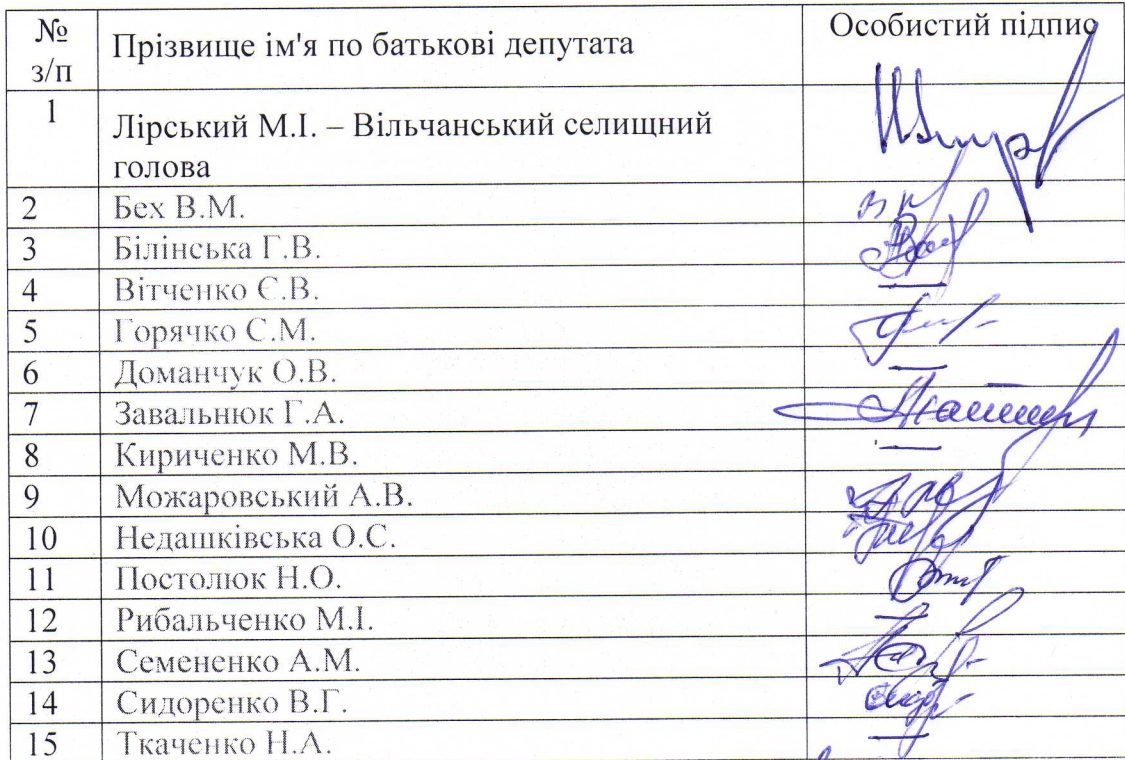 № з/п Прізвище ім'я по батькові депутата Особистий підпис
1 Лірський М.І. – Вільчанський селищний
голова
2 Бех В.М.
3 Білінська Г.В.
4 Вітченко Є.В. —
5 Горячко С.М.
6 Доманчук О.В. —
7 Завальнюк Г.А.
8 Кириченко М.В. —
9 Можаровський А.В.
10 Недашківська О.С.
11 Постолюк Н.О.
12 Рибальченко М.І. —
13 Семененко А.М.
14 Сидоренко В.Г.
15 Ткаченко Н.А. —